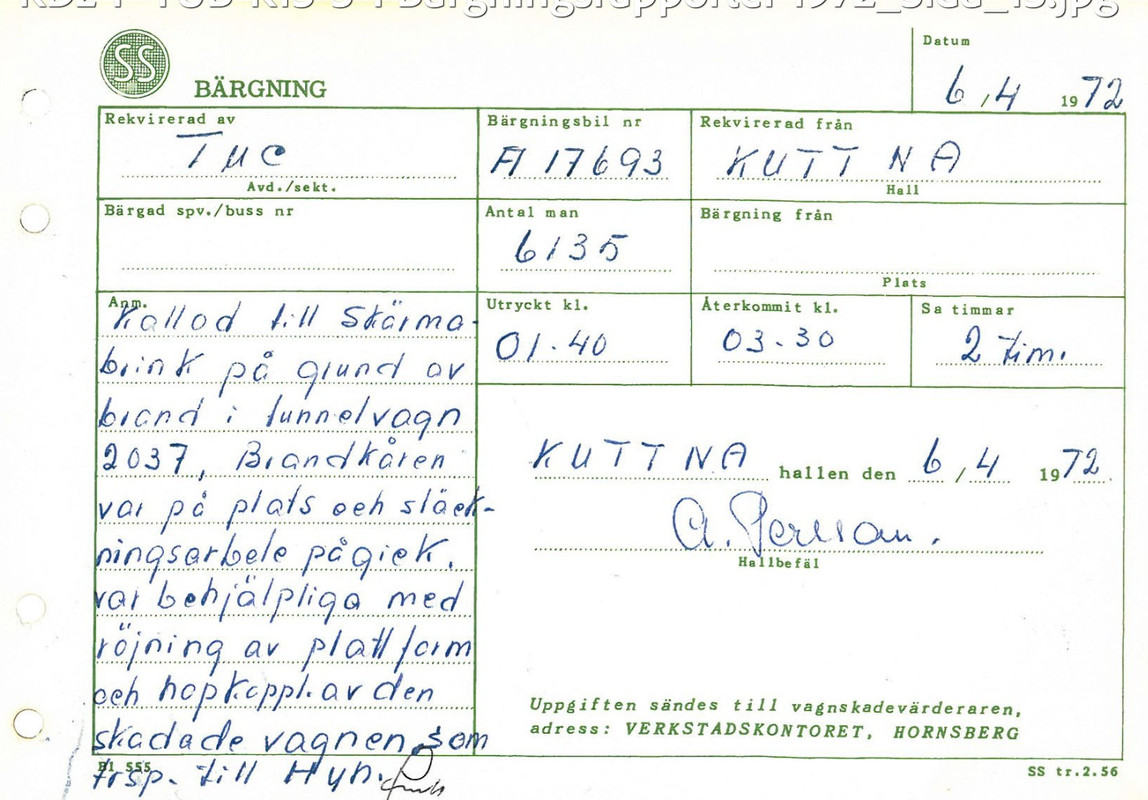 SS
BÄRGNING
Datum
6/4 1972
Rekvirerad av
TUC
Avd./sekt.
Bärgningsbil nr
A 17693
Rekvirerad från
KUTTNA
Hall
Bärgad spv./buss nr
Antal man
6135
Bärgning från
Plats
Utryckt kl.
01.40
Återkommit kl.
03.30
Sa timmar
2 tim.
Anm.
Kallad till Skärma-
brink på grund av
brand i tunnelvagn
2037, Brandkåren
var på plats och släck-
ningsarbete pågick.
var behjälpliga med
röjning av plattform
och hopkoppl. av den
skadade vagnen som
trsp. till Hyh.
KUTTNA hallen den 6/4 1972
A. Persson.
Hallbefäl
Uppgiften sändes till vagnskadevärderaren,
adress: VERKSTADSKONTORET, HORNSBERG
Bl 555
SS tr.2.56